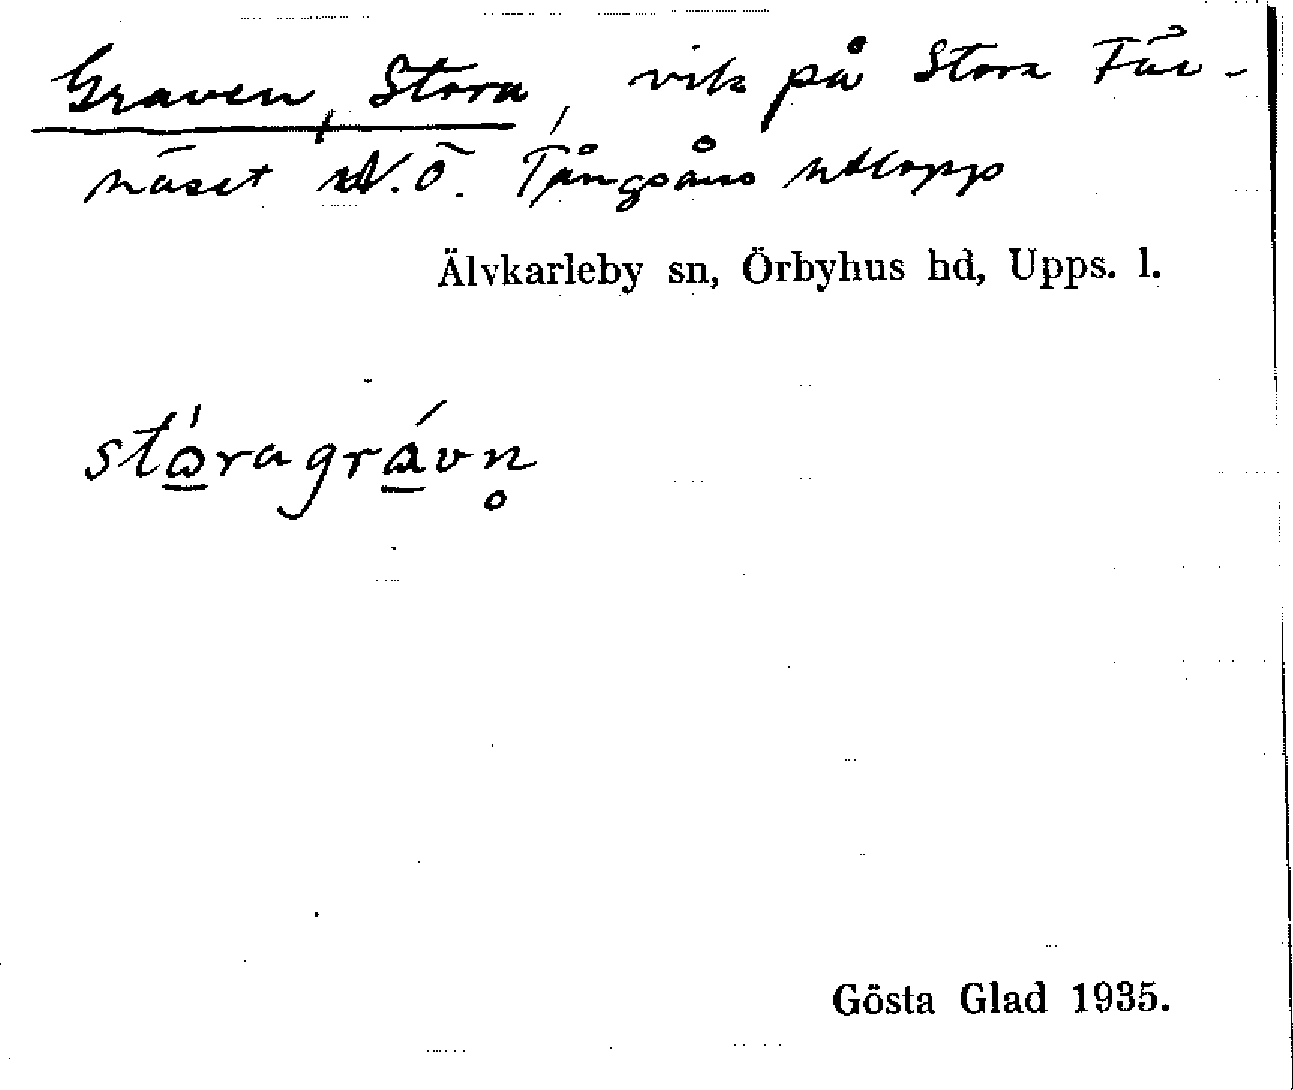 Graven, Stora, vik på Stora Får-
näset N.Ö. Tångsåns utlopp
Älvkarleby sn, Örbyhus hd, Upps. l.
stóragrávn̥
Gösta Glad 1935.